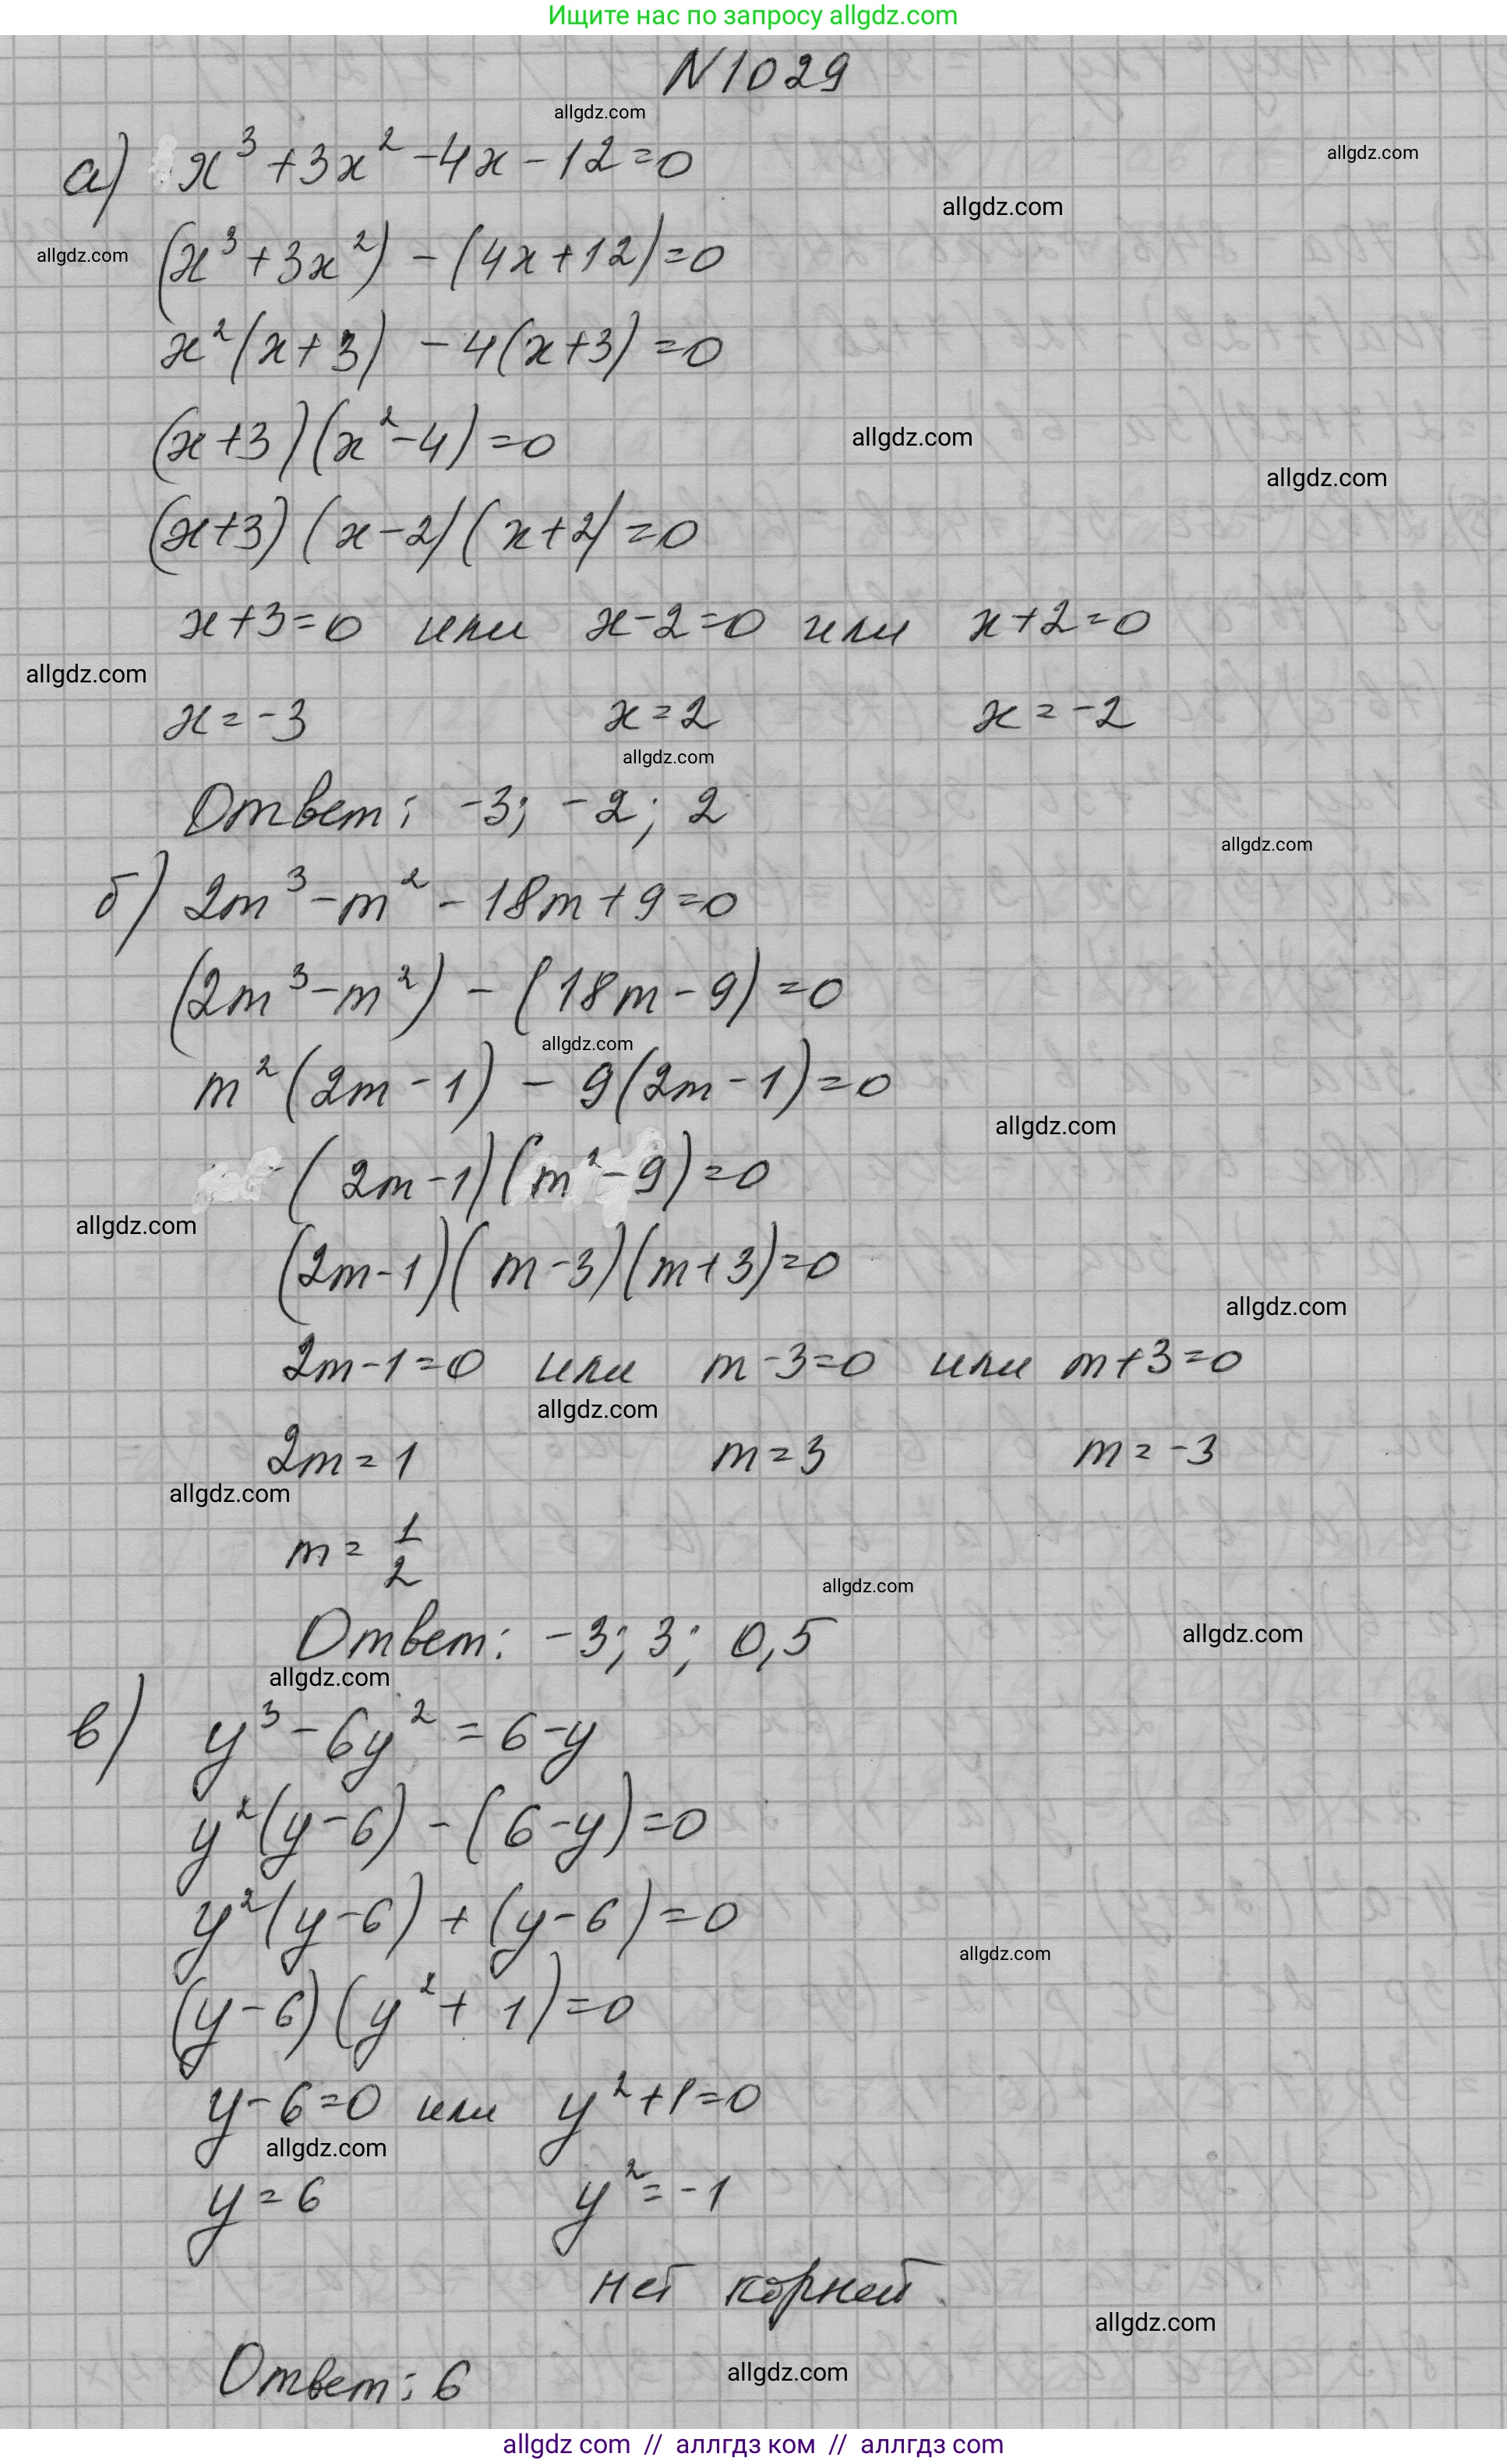 Ищите нас по запросу allgdz.com
N1029
allgdz.com
а) x³+3x²-4x-12=0
allgdz.com
allgdz.com
allgdz.com
(x³+3x²)-(4x+12)=0
x²(x+3)-4(x+3)=0
(x+3)(x²-4)=0
allgdz.com
allgdz.com
(x+3)(x-2)(x+2)=0
x+3=0 или x-2=0 или x+2=0
allgdz.com
x=-3 x=2 x=-2
allgdz.com
Ответ: -3; -2; 2
allgdz.com
б) 2m³-m²-18m+9=0
(2m³-m²)-(18m-9)=0
allgdz.com
m²(2m-1)-9(2m-1)=0
allgdz.com
(2m-1)(m²-9)=0
allgdz.com
(2m-1)(m-3)(m+3)=0
allgdz.com
2m-1=0 или m-3=0 или m+3=0
allgdz.com
2m=1 m=3 m=-3
allgdz.com
m=1/2
allgdz.com
Ответ: -3; 3; 0,5
allgdz.com
allgdz.com
в) y³-6y²=6-y
y²(y-6)-(6-y)=0
y²(y-6)+(y-6)=0
allgdz.com
(y-6)(y²+1)=0
y-6=0 или y²+1=0
allgdz.com
y=6 y²=-1
нет корней
allgdz.com
Ответ: 6
allgdz.com
allgdz com // аллгдз ком // аллгдз com